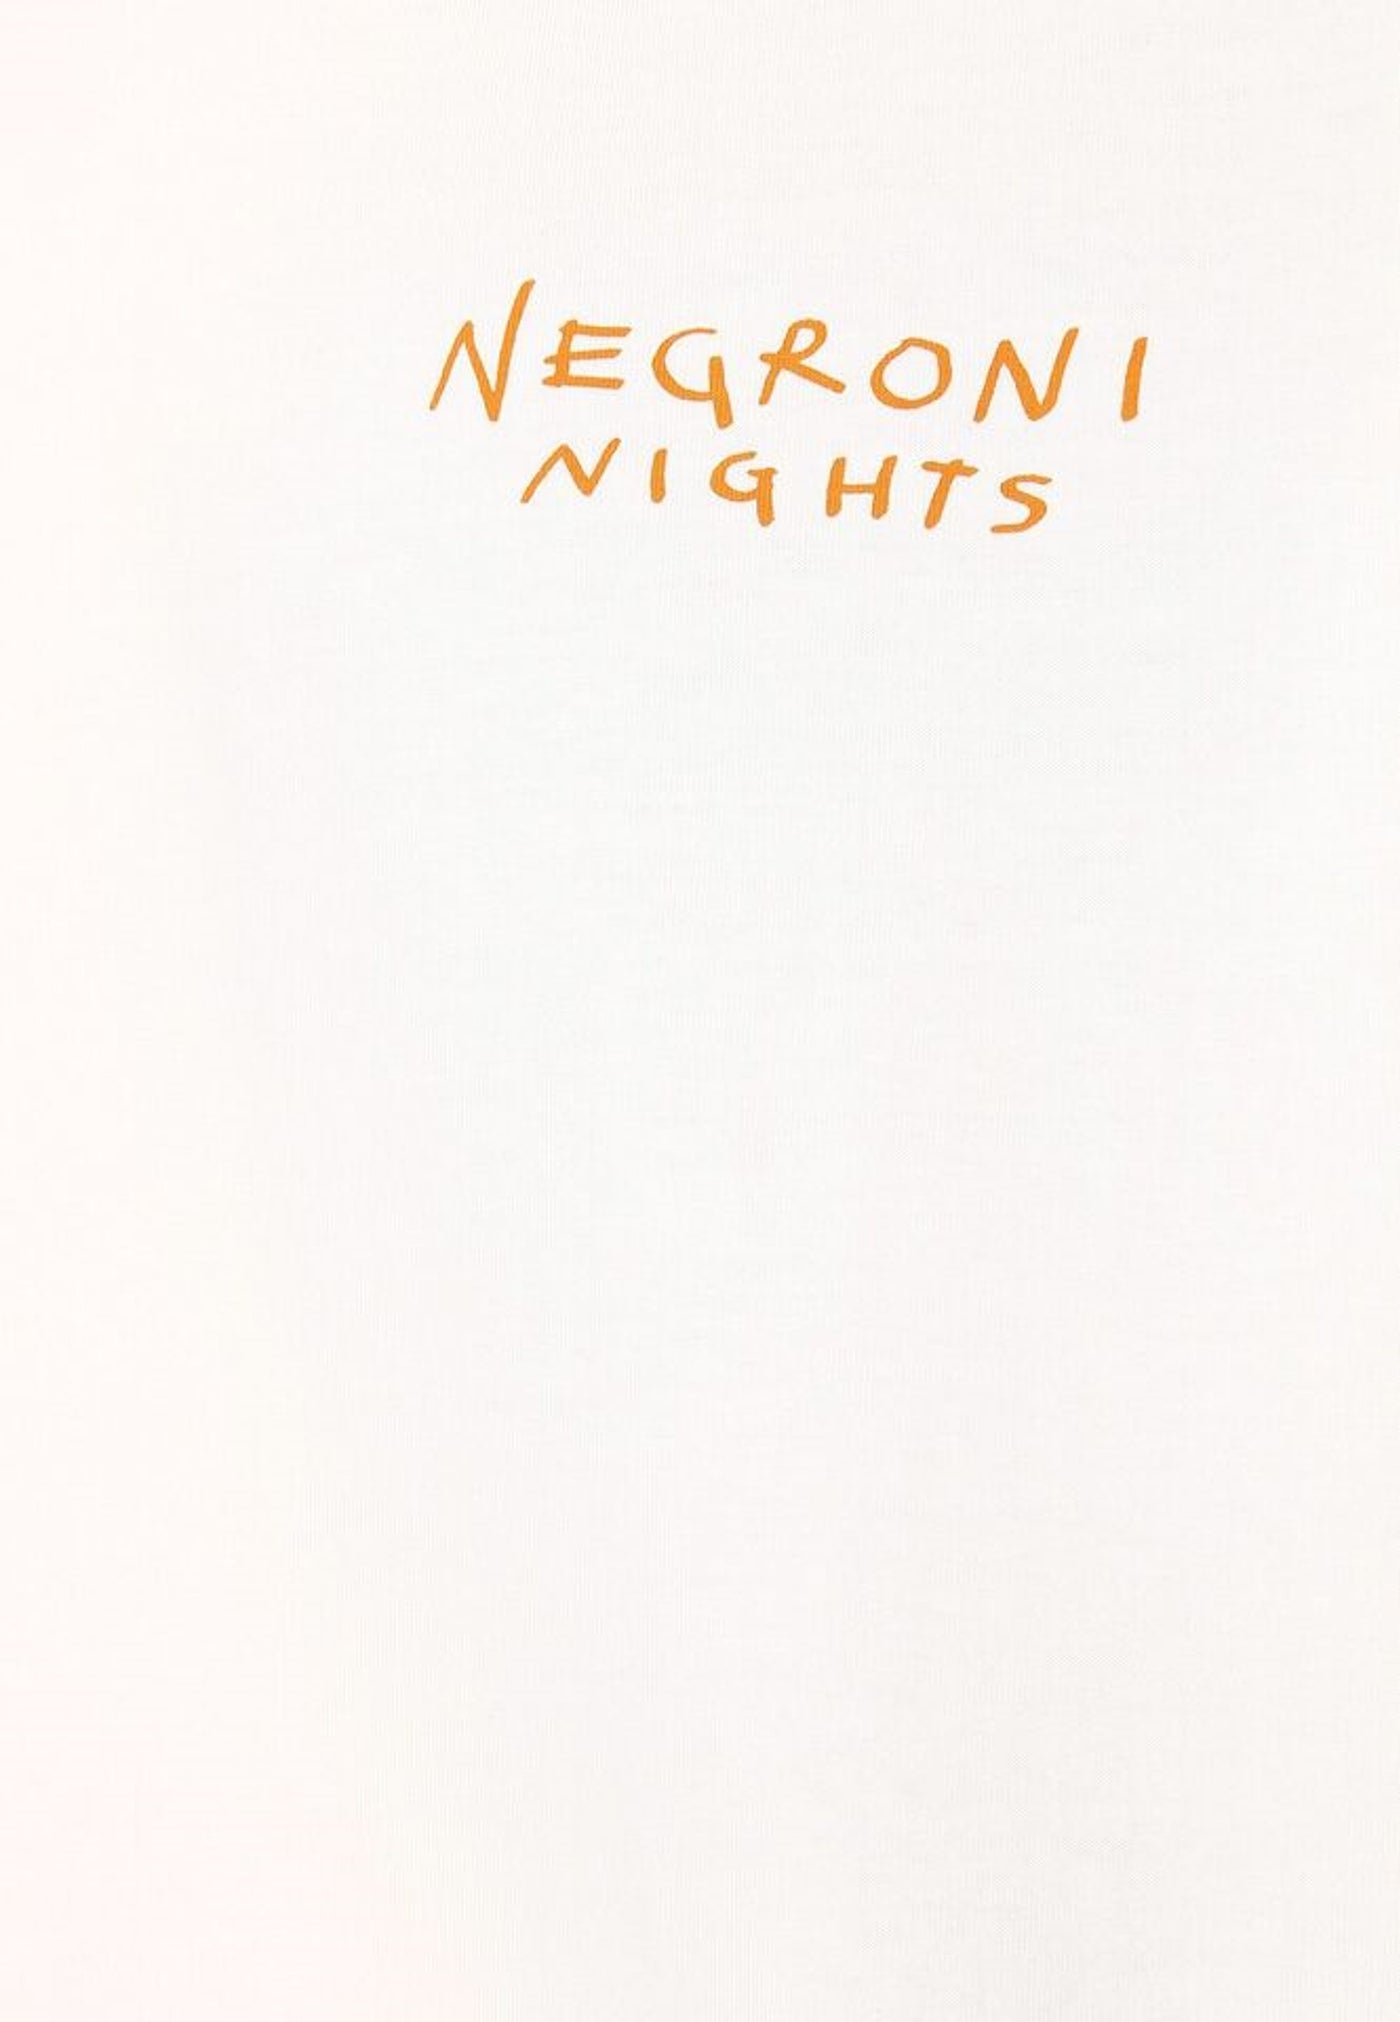 NEGRONI
NIGHTS